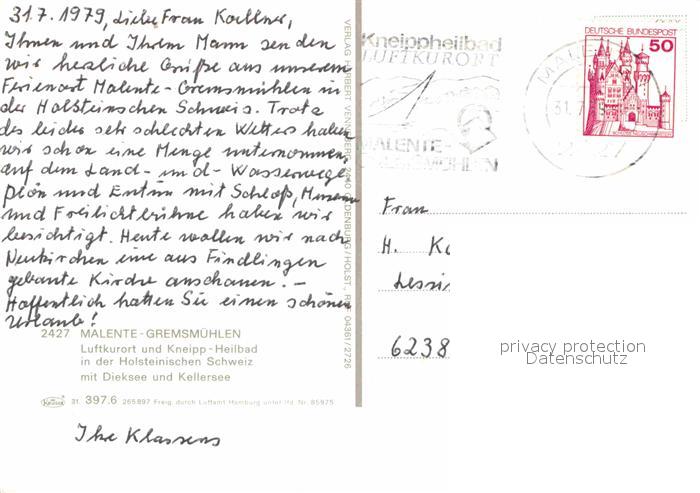 31.7.1979, Liebe Frau Koellner,
Ihnen und Ihrem Mann senden
wir herzliche Grüße aus unserem
Ferienort Malente-Gremsmühlen in
der Holsteinschen Schweiz. Trotz
des leider sehr schlechten Wetters haben
wir schon eine Menge unternommen,
auf dem Land- und Wasserwege.
Plön und Eutin mit Schloß, Museum
und Freilichtbühne haben wir
besichtigt. Heute wollen wir nach
Neukirchen eine aus Findlingen
gebaute Kirche anschauen. –
Hoffentlich hatten Sie einen schönen
Urlaub!
2427 MALENTE-GREMSMÜHLEN
Luftkurort und Kneipp-Heilbad
in der Holsteinischen Schweiz
mit Dieksee und Kellersee
31. 397.6 265897 Freig. durch Luftamt Hamburg unter lfd. Nr. 85975
Ihre Klassens
2440 OLDENBURG/HOLST., RUF 04361/2726
Kneippheilbad
LUFTKURORT
MALENTE-
GREMSMÜHLEN
DEUTSCHE BUNDESPOST
50
Frau
H.
6238
privacy protection
Datenschutz